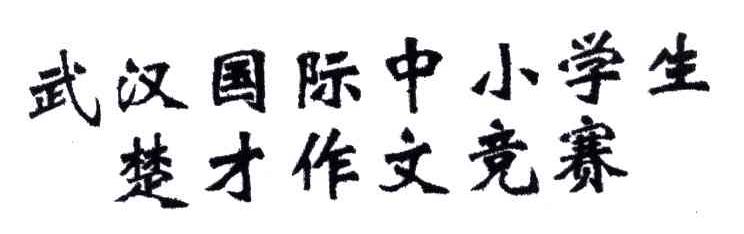 武汉国际中小学生
楚才作文竞赛